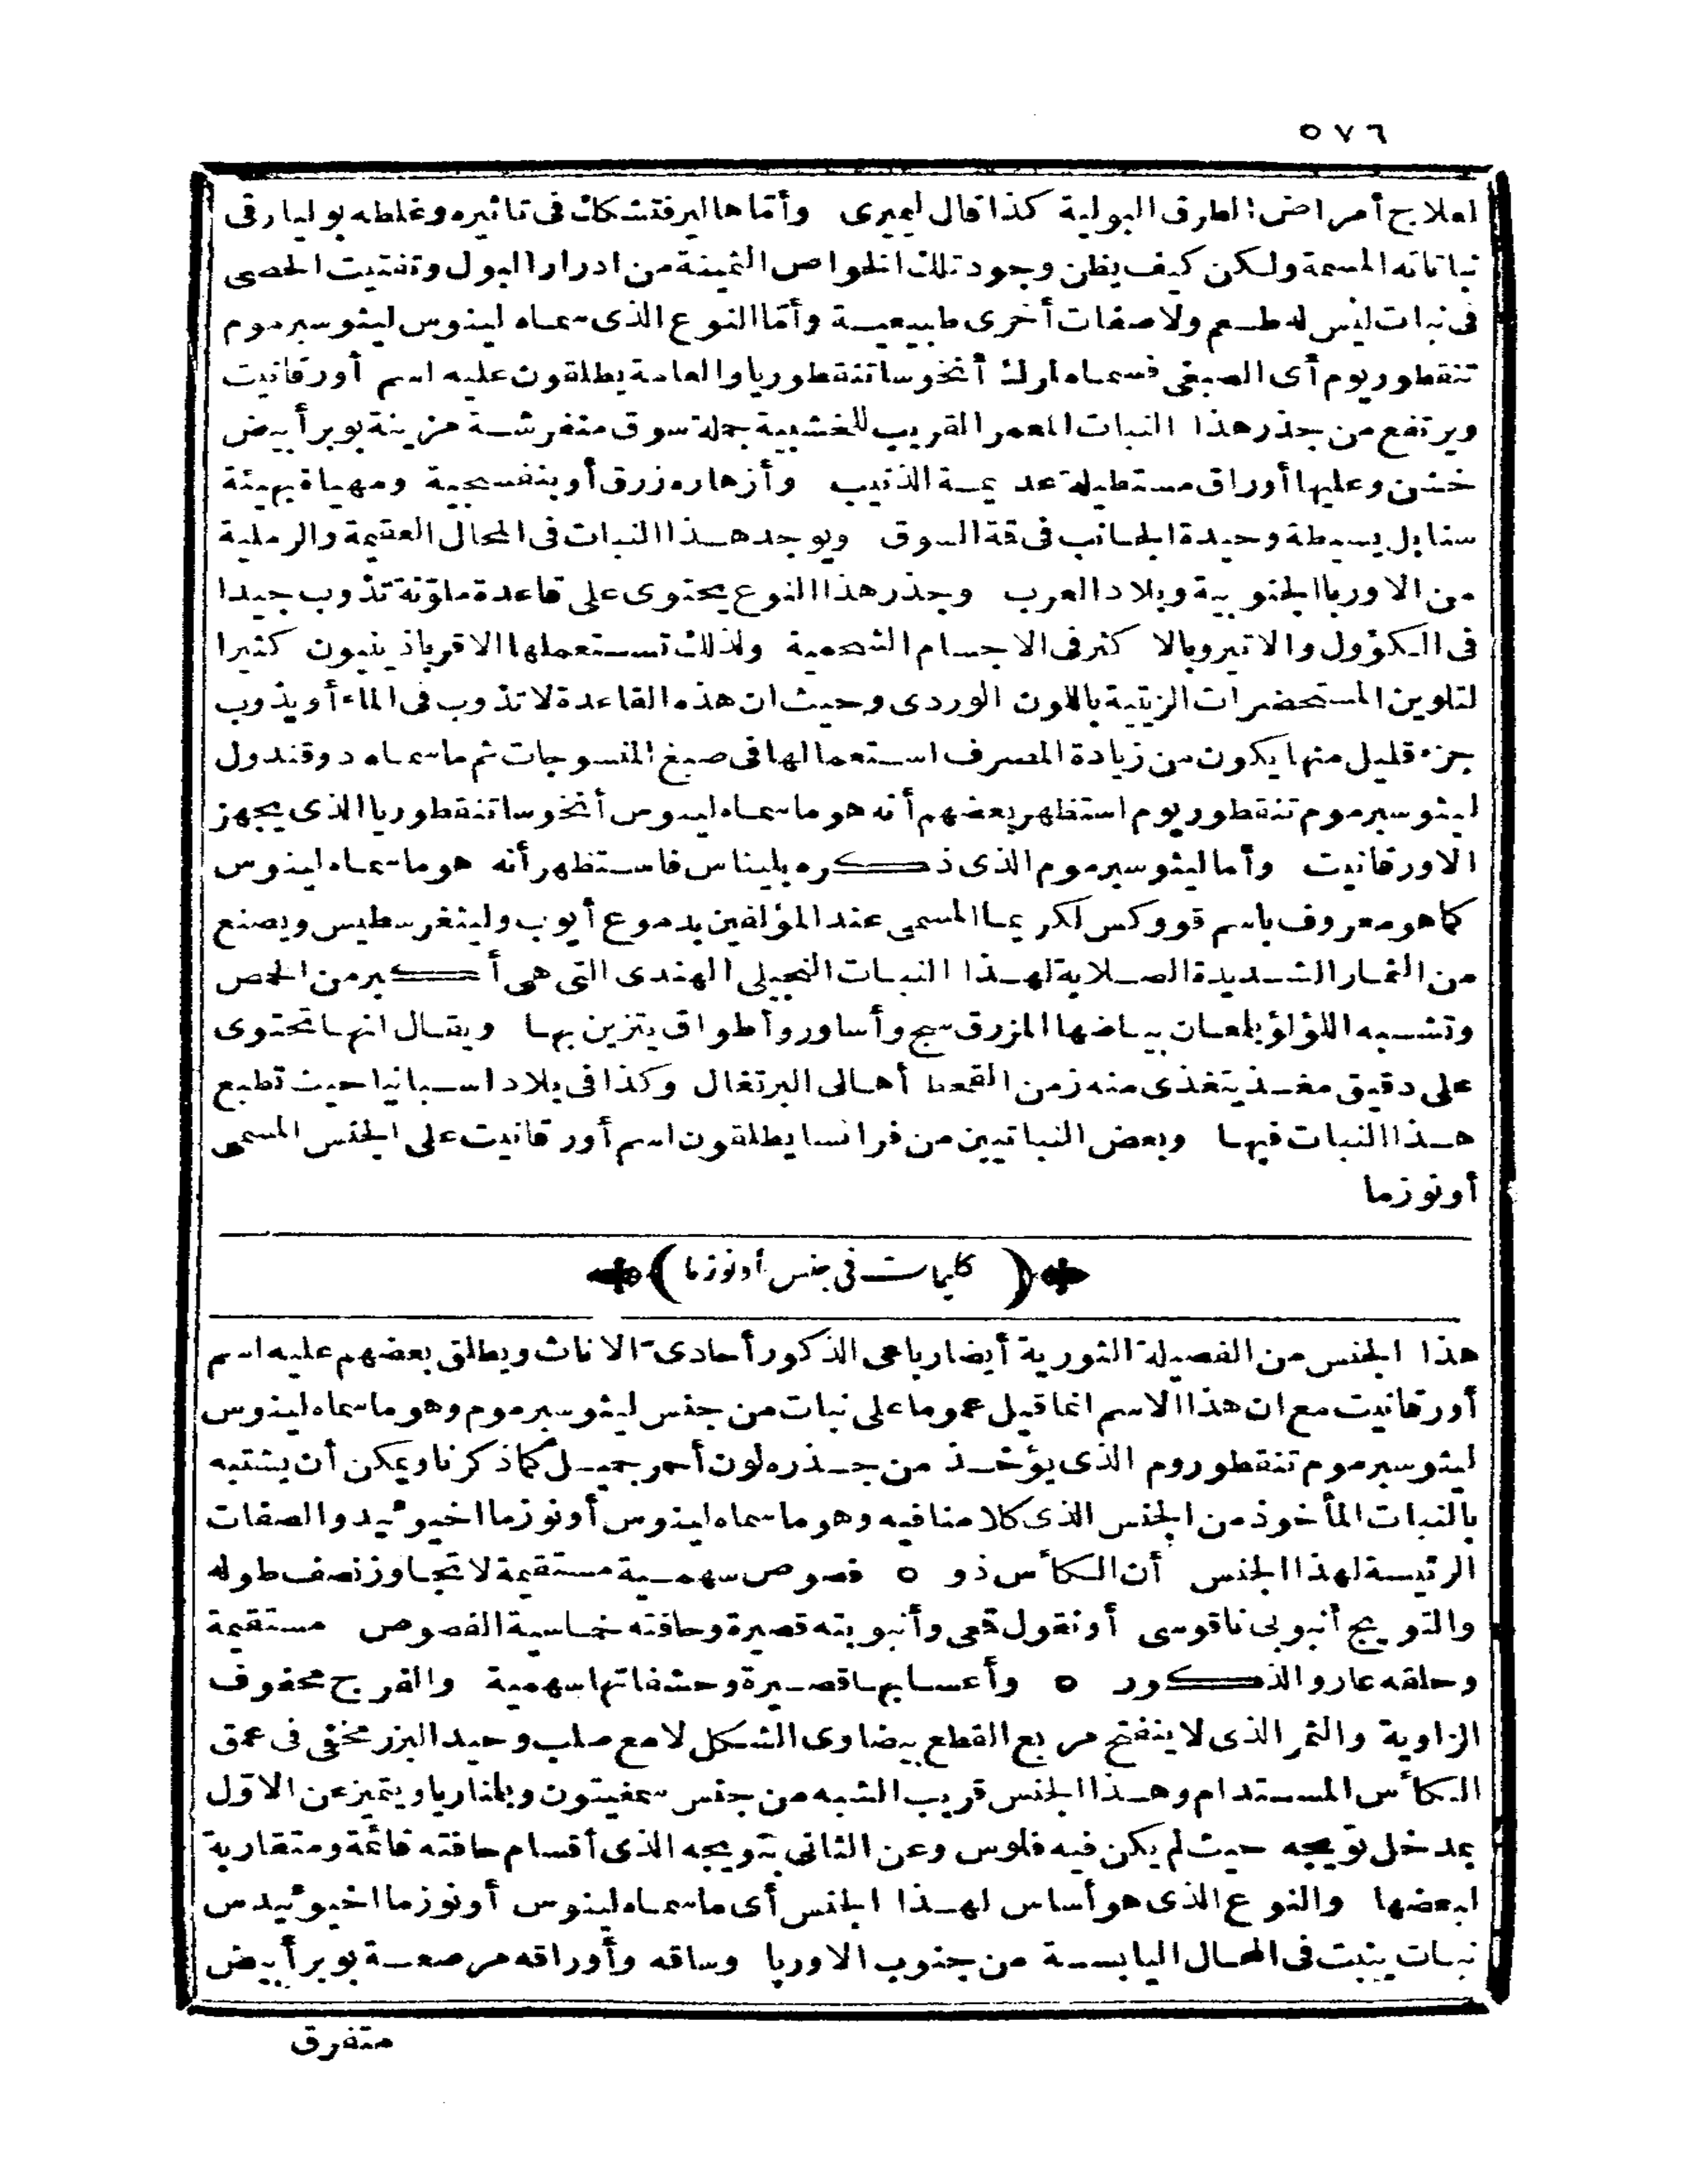 ٥٧٦
لعلاج أمراض الطرق البولية كذا قال ليميرى وأما هاليرفتشكك فى تاثيره وغلطه بوليارفى
نباتاته المسمة ولكن كيف يظن وجود تلك الخواص الثمينة من ادرار البول وتفتيت الحصى
فى نبات ليس له طعم ولا صفات أخرى طبيعية وأما النوع الذى سماه لينوس ليثوسبرموم
تنقطوريوم أى الصبغى فسماه لمرك أنخوساتنقطوريا والعامة يطلقون عليه اسم أورقانيت
ويرتفع من جذر هذا النبات المعمر القريب للخشبية جملة سوق متفرشة مزينة بوبر أبيض
خشن وعليها أوراق مستطيلة عديمة الذنيب وأزهاره زرق أو بنفسجية ومهيأة بهيئة
سنابل بسيطة وحيدة الجانب فى قة السوق ويوجد هذا النبات فى المحال العقيمة والرملية
من الاوربا الجنوبية وبلاد العرب وجذر هذا النوع يحتوى على قاعدة ملونة تذوب جيدا
فى الكؤول والاتير وبالاكثر فى الاجسام الشحمية ولذلك تستعملها الاقرباذينيون كثيرا
لتلوين المستحضرات الزيتية باللون الوردى وحيث ان هذه القاعدة لا تذوب فى الماء أو يذوب
جزء قليل منها يكون من زيادة المصرف استعمالها فى صبغ المنسوجات ثم ما سماه دوقندول
ليثوسبرموم تنقطوريوم استظهر بعضهم أنه هو ما سماه لينوس أنخوساتنقطوريا الذى يجهز
الاورقانيت وأما ليثوسبرموم الذى ذكره بليناس فاستظهر أنه هو ما سماه لينوس
كما هو معروف باسم قووكس لكريما المسمى عند المؤلفين بدموع أيوب وليثغرسطيس ويصنع
من الثمار الشديدة الصلابة لهذا النبات النجيلى الهندى التى هى أكبر من الحمص
وتشبه اللؤلؤ بلمعان بياضها المزرق سبح وأساور وأطواق يتزين بها ويقال انها تحتوى
على دقيق مغذ يتغذى منه زمن القحط أهالى البرتغال وكذا فى بلاد اسبانيا حيث تطبع
هذا النبات فيها وبعض النباتيين من فرانسا يطلقون اسم أورقانيت على الجنس المسمى
أونوزما
(كليمات فى جنس أونوزما)
هذا الجنس من الفصيلة الثورية أيضا رباعى الذكور أحادى الاناث ويطلق بعضهم عليه اسم
أورقانيت مع ان هذا الاسم انما قيل عموما على نبات من جنس ليثوسبرموم وهو ما سماه لينوس
ليثوسبرموم تنقطوروم الذى يؤخذ من جذره لون أحمر جميل كما ذكرنا ويمكن أن يشتبه
بالنبات المأخوذ من الجنس الذى كلامنا فيه وهو ما سماه لينوس أونوزما اخيوئيد والصفات
الرئيسة لهذا الجنس أن الكأس ذو ٥ فصوص سهمية مستقيمة لا تتجاوز نصف طوله
والتويج أنبوبى ناقوسى أو نقول قمعى وأنبوبته قصيرة وحافته خماسية الفصوص مستقيمة
وحلقه عار والذكور ٥ وأعسابها قصيرة وحشفاتها سهمية والفرج محفوف
الزاوية والثمر الذى لا ينفتح مربع القطع بيضاوى الشكل لامع صلب وحيد البزر مختفى فى عمق
الكأس المستدام وهذا الجنس قريب الشبه من جنس سمفيتون وبلمناريا ويتميز عن الاول
بمدخل تويجه حيث لم يكن فيه فلوس وعن الثانى بتويجه الذى أقسام حافته قائمة ومتقاربة
لبعضها والنوع الذى هو أساس لهذا الجنس أى ما سماه لينوس أونوزما اخيوئيدس
نبات ينبت فى المحال اليابسة من جنوب الاوربا وساقه وأوراقه مرصعة بوبر أبيض
متفرق